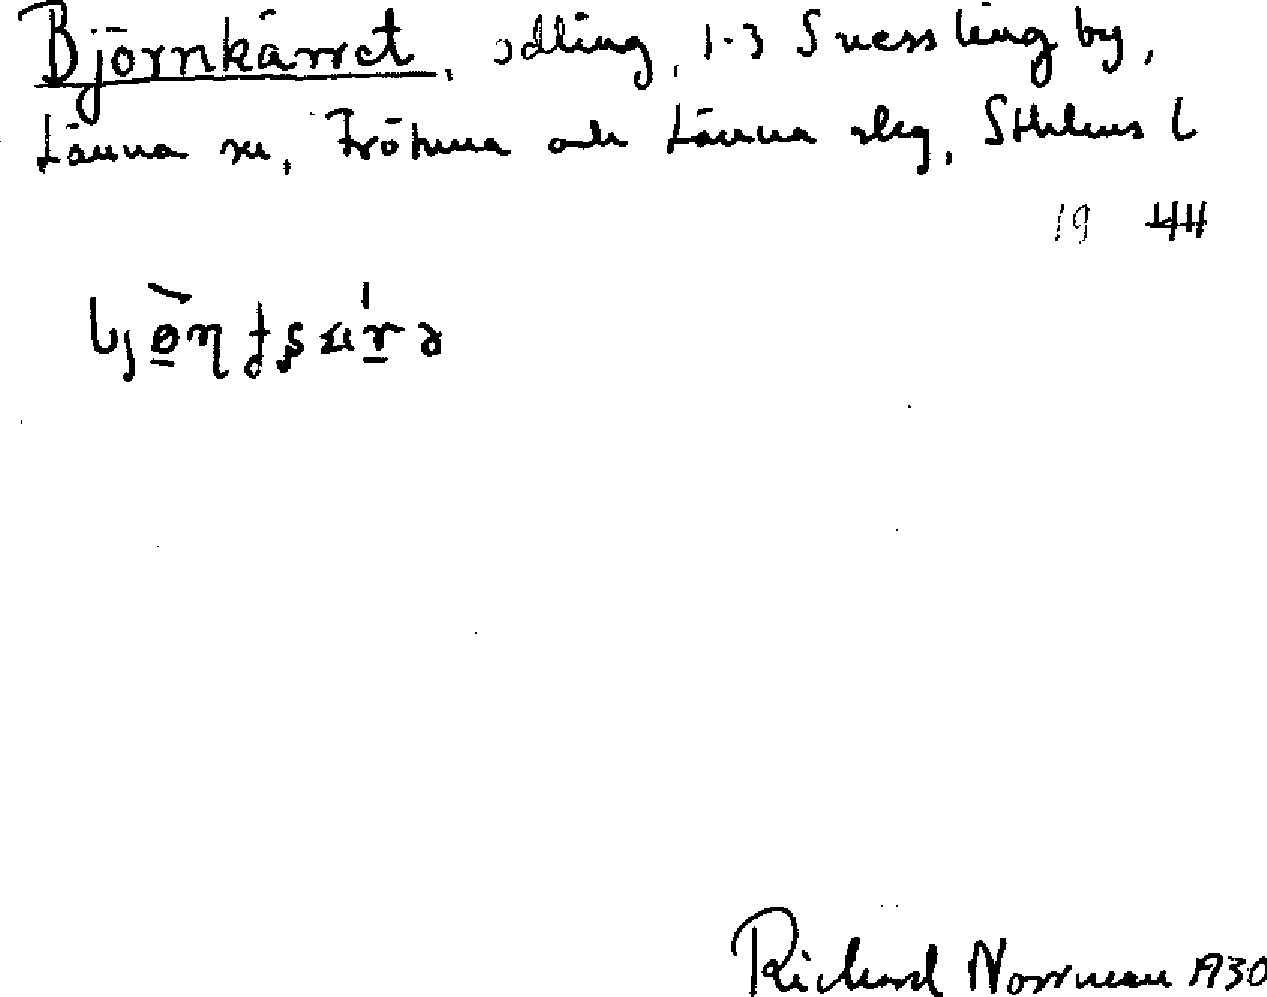 Björnkärret, odling, 1-3 Snessling by,
Länna sn, Frötuna och Länna skg, Sthlms l
19 44
Richard Norrman 1930